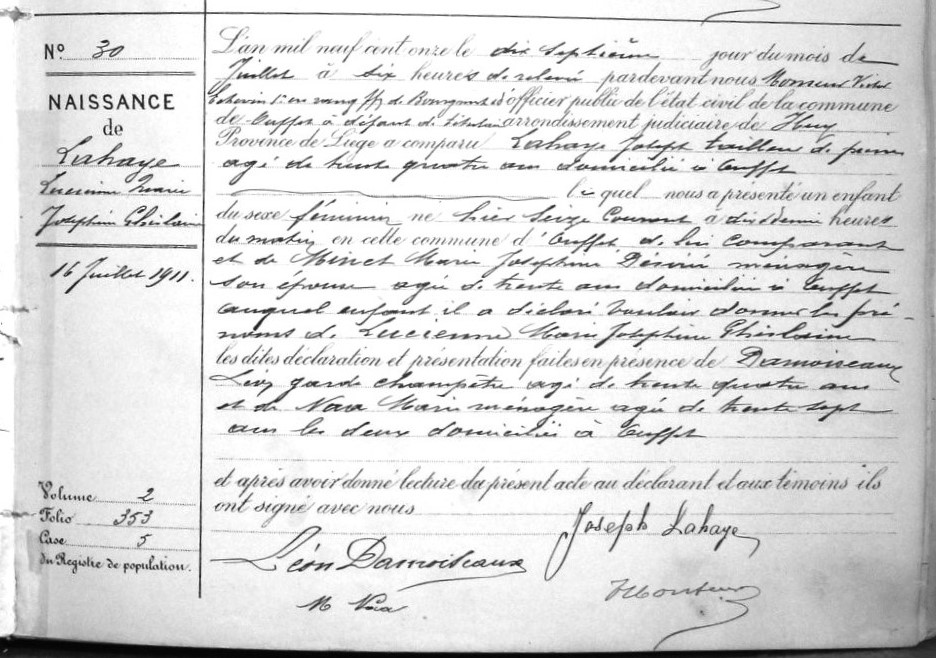 N° 30
NAISSANCE
de
Lahaye
Lucienne Marie
Joséphine Ghislaine
16 Juillet 1911.
Volume 2
Folio 353
Case 5
du Registre de population.
L'an mil neuf cent onze le dix septième jour du mois de
Juillet à six heures de relevé pardevant nous Monsieur Victor
Echevin en rang ff de Bourgmestre d'officier public de l'état civil de la commune
de Ouffet à défaut de titulaire arrondissement judiciaire de Huy
Province de Liège a comparu Lahaye Joseph tailleur de pierres
agé de trente quatre ans domicilié à Ouffet
le quel nous a présenté un enfant
du sexe féminin né hier seize courant à dix demie heures
du matin en cette commune d'Ouffet, de lui comparant
et de Minet Marie Joséphine Désirée ménagère
son épouse agée de trente ans domiciliée à Ouffet
auquel enfant il a déclaré vouloir donner les pré-
noms de Lucienne Marie Joséphine Ghislaine
les dites déclaration et présentation faites en présence de Damoiseaux
Léon garde champêtre agé de trente quatre ans
et de Marie ménagère agée de trente sept
ans les deux domiciliés à Ouffet
et après avoir donné lecture du présent acte au déclarant et aux témoins ils
ont signé avec nous
Joseph Lahaye
Léon Damoiseaux
M